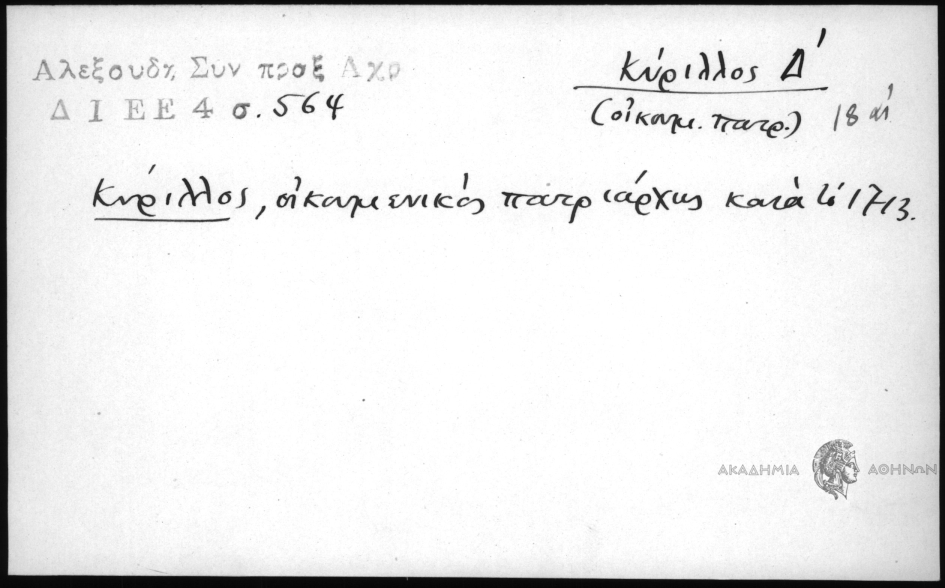 Αλεξουδη Συν πραξ Αχρ
Δ Ι Ε Ε 4 σ. 564
Κύριλλος Δ'
(οἰκουμ. πατρ.) 18 αἰ
Κύριλλος, οἰκουμενικός πατριάρχης κατὰ τό 1713.
ΑΚΑΔΗΜΙΑ ΑΘΗΝΩΝ